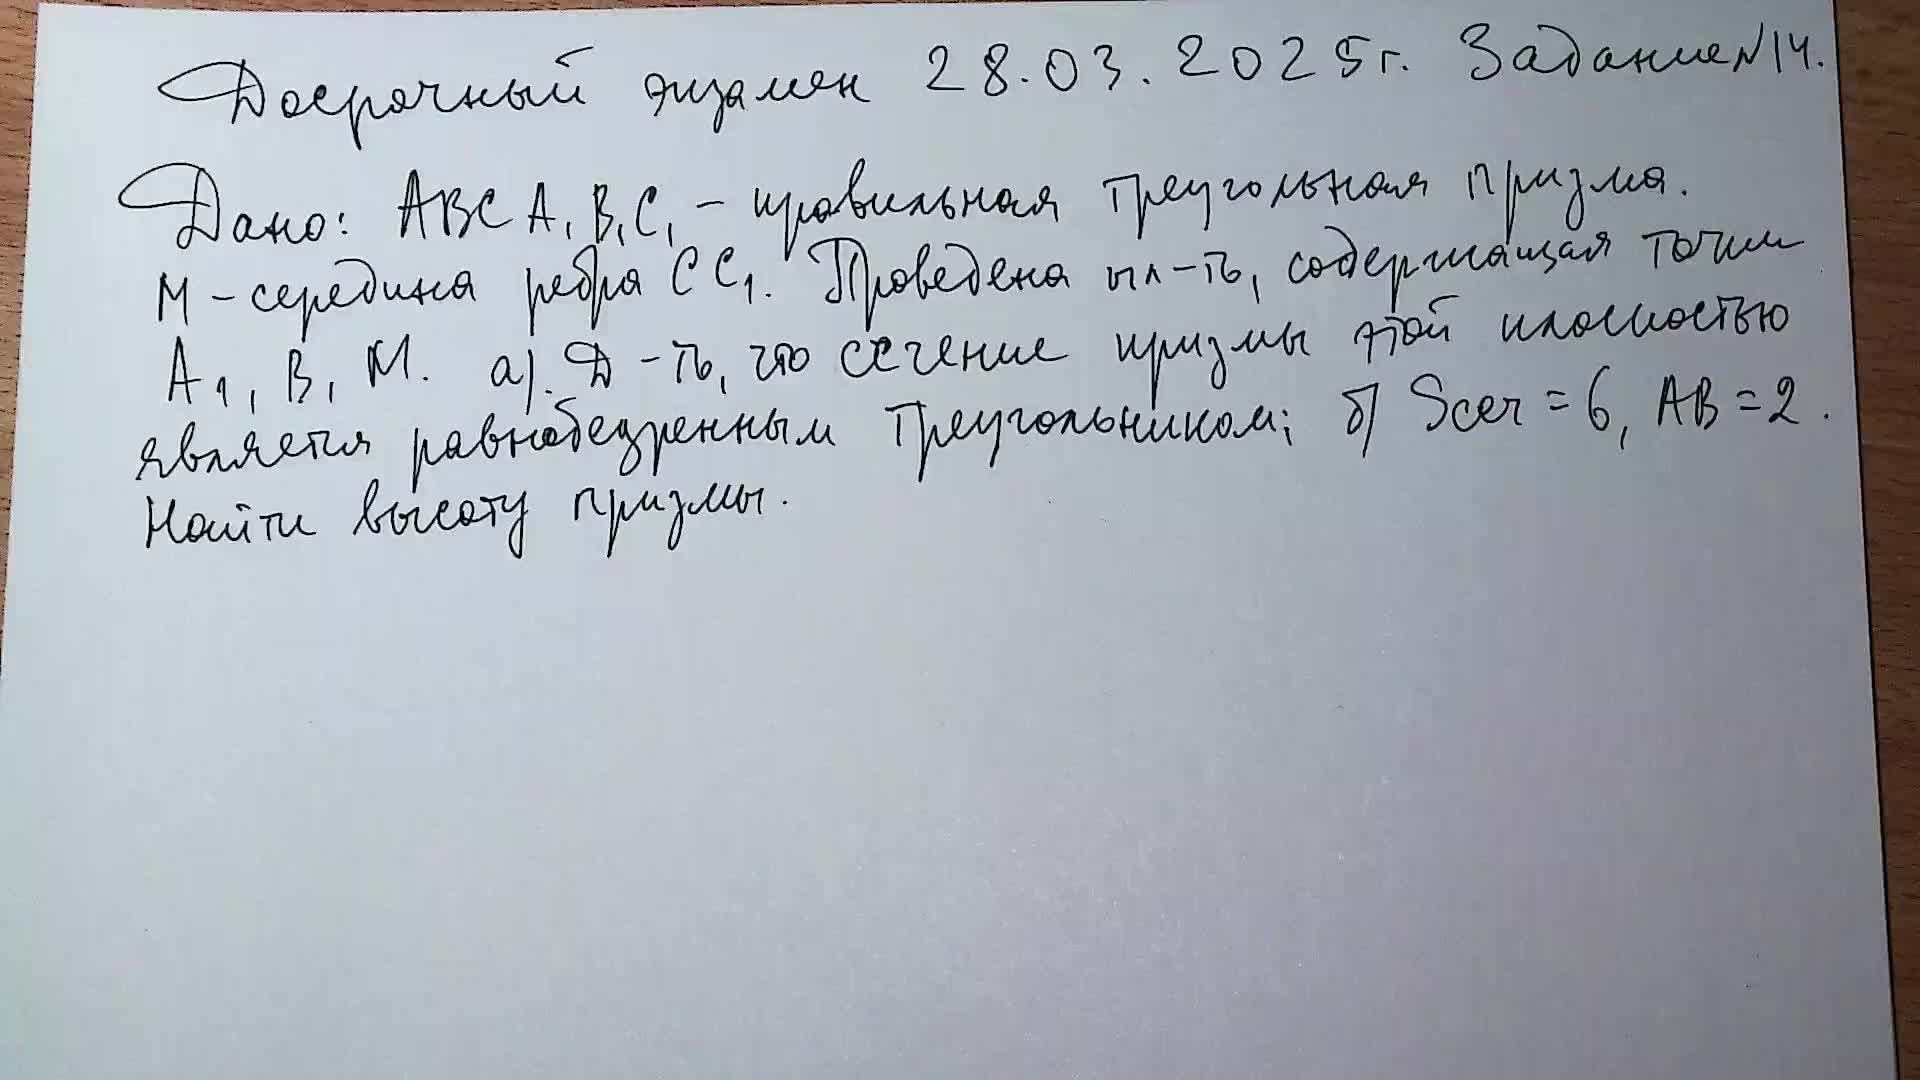 Досрочный экзамен 28.03.2025г. Задание №14.
Дано: ABCA₁B₁C₁ – правильная треугольная призма.
M – середина ребра CC₁. Проведена пл-ть, содержащая точки
A₁, B, M. а). Д-ть, что сечение призмы этой плоскостью
является равнобедренным треугольником; б) Sсеч = 6, AB = 2.
Найти высоту призмы.